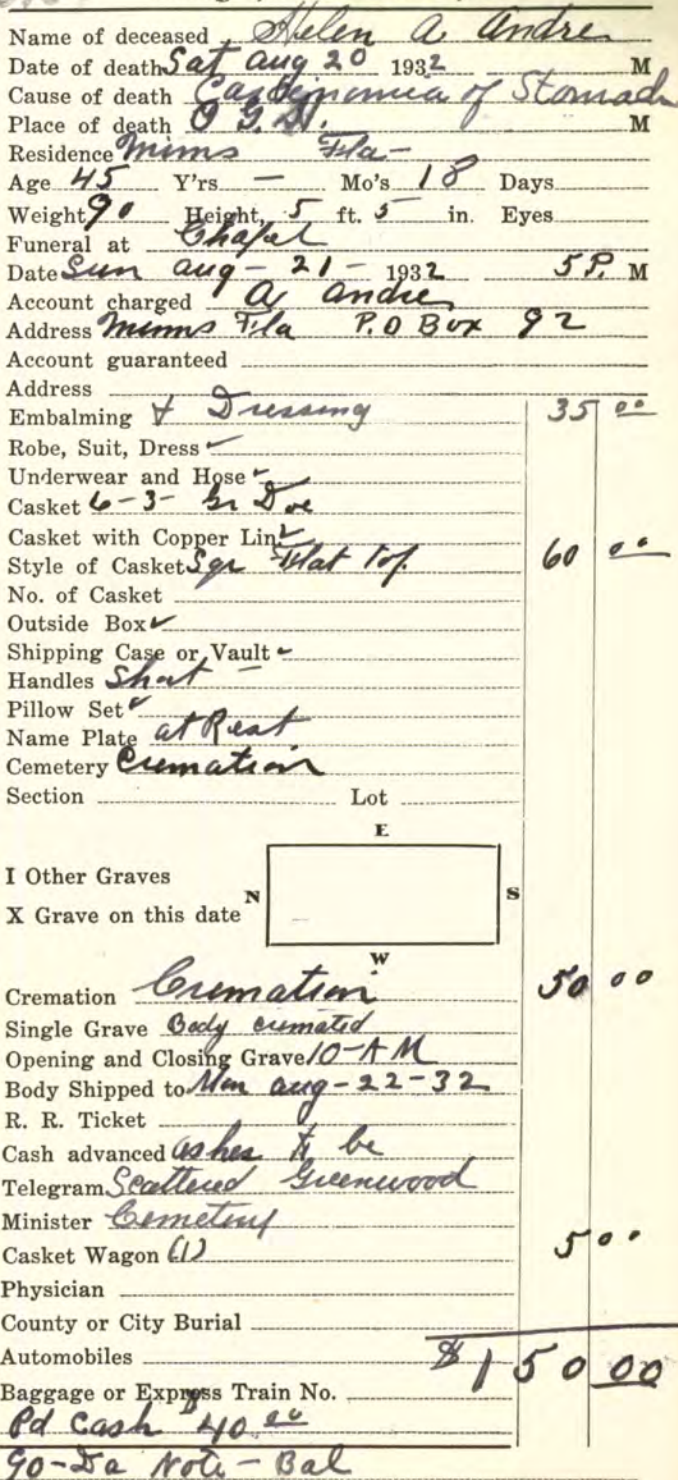 Name of deceased Helen A Andre
Date of death Sat Aug 20 1932 M
Cause of death of Stomach
Place of death O G. M
Residence Mims Fla-
Age 45 Y'rs — Mo's 18 Days
Weight 90 Height, 5 ft. 5 in. Eyes
Funeral at Chapel
Date Sun Aug - 21 - 1932 5 P. M
Account charged A Andre
Address Mims Fla P.O Box 92
Account guaranteed
Address
Embalming & Dressing 35 00
Robe, Suit, Dress ✓
Underwear and Hose ✓
Casket 6-3- Gr Doe
Casket with Copper Lin ✓
Style of Casket Sqr Flat Top 60 00
No. of Casket
Outside Box ✓
Shipping Case or Vault ✓
Handles Short —
Pillow Set ✓
Name Plate At Rest
Cemetery Cremation
Section Lot
E
I Other Graves
N S
X Grave on this date
W
Cremation Cremation 50 00
Single Grave Body cremated
Opening and Closing Grave 10-AM
Body Shipped to Mon Aug-22-32
R. R. Ticket
Cash advanced Ashes to be
Telegram Scattered Greenwood
Minister Cemetery
Casket Wagon (1) 5 00
Physician
County or City Burial
Automobiles $150 00
Baggage or Express Train No.
Pd Cash $40.00
90-Da Note - Bal